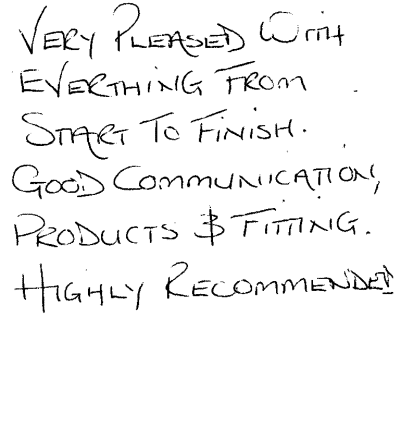 VERY PLEASED WITH
EVERTHING FROM
START TO FINISH.
GOOD COMMUNICATION,
PRODUCTS & FITTING.
HIGHLY RECOMMENDED